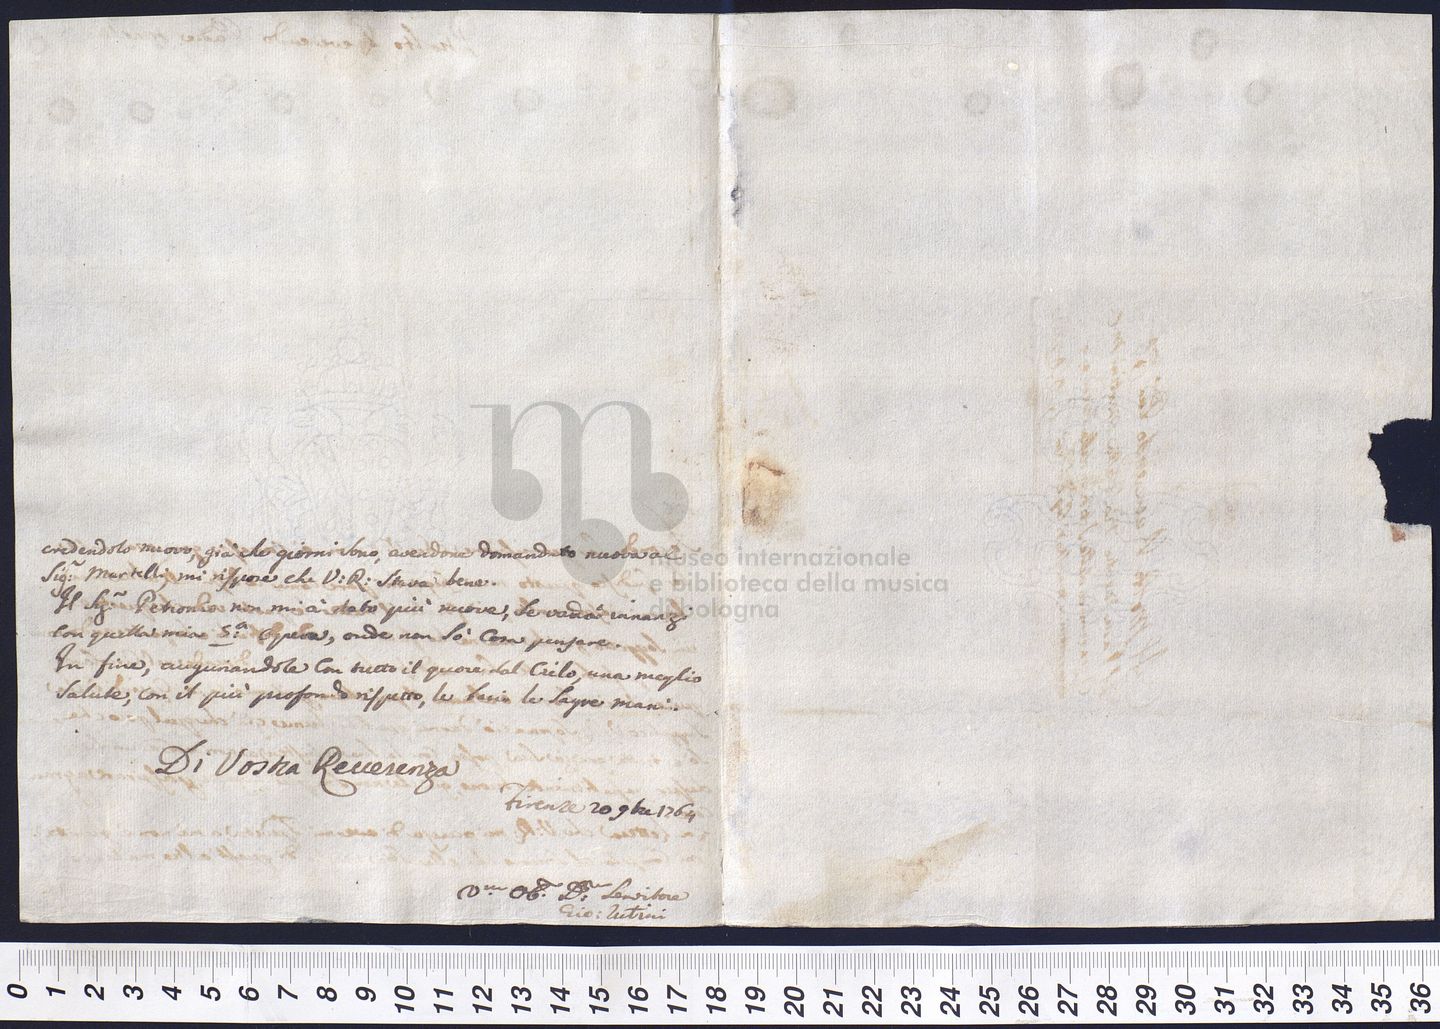 credendolo nuovo, già che giorni sono, avendone domandato nuova al
Sig.r Martelli, mi rispose che V: R: stava bene.
Il Sig.r Petronio non mi à dato più nuove, se vada innanzi
con quella mia 5.a Opera, onde non sò cosa pensare.
In fine, augurandole con tutto il quore dal Cielo, una meglio
salute, con il più profondo rispetto, le bacio le sagre mani.
Di Vostra Reverenza
Firenze 20 9bre 1764
Servitore
Gio:
museo internazionale
e biblioteca della musica
di bologna
0 1 2 3 4 5 6 7 8 9 10 11 12 13 14 15 16 17 18 19 20 21 22 23 24 25 26 27 28 29 30 31 32 33 34 35 36